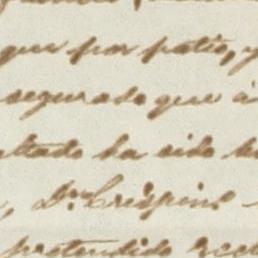 que por patio, y
segurado que á
ltado ha sido
, Dn Crispin
pretendido